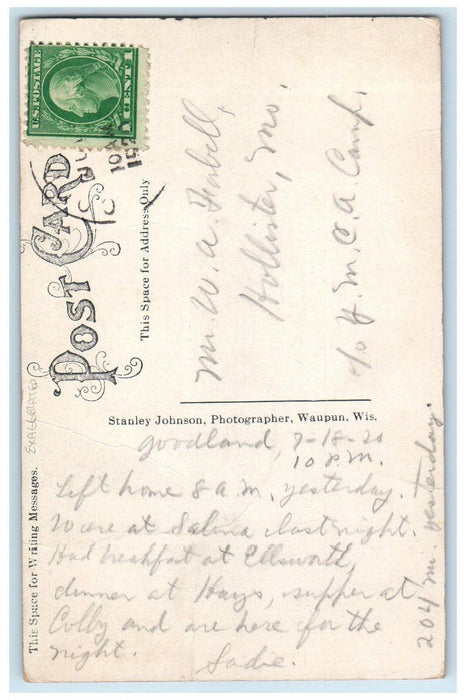 U.S. POSTAGE
1 CENT 1
POST CARD
This Space for Address Only
Mr. W. A. 
Hollister, Mo.
c/o Y. M. C. A. Camp.
Stanley Johnson, Photographer, Waupun, Wis.
This Space for Writing Messages.
EXAGGERATED
Goodland, 7-18-20
10 P.M.
Left home 8 A.M. yesterday.
Were at Salina last night.
Had breakfast at Ellsworth,
dinner at Hays, supper at
Colby and are here for the
night. Sadie.
204 mi. yesterday.